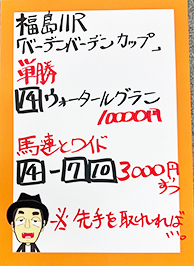 福島11R
「バーデンバーデンカップ」
単勝
14 ウォータールグラン
10000円
馬連とワイド
14-7 10 3000円
ずつ
※先手を取ければ…。